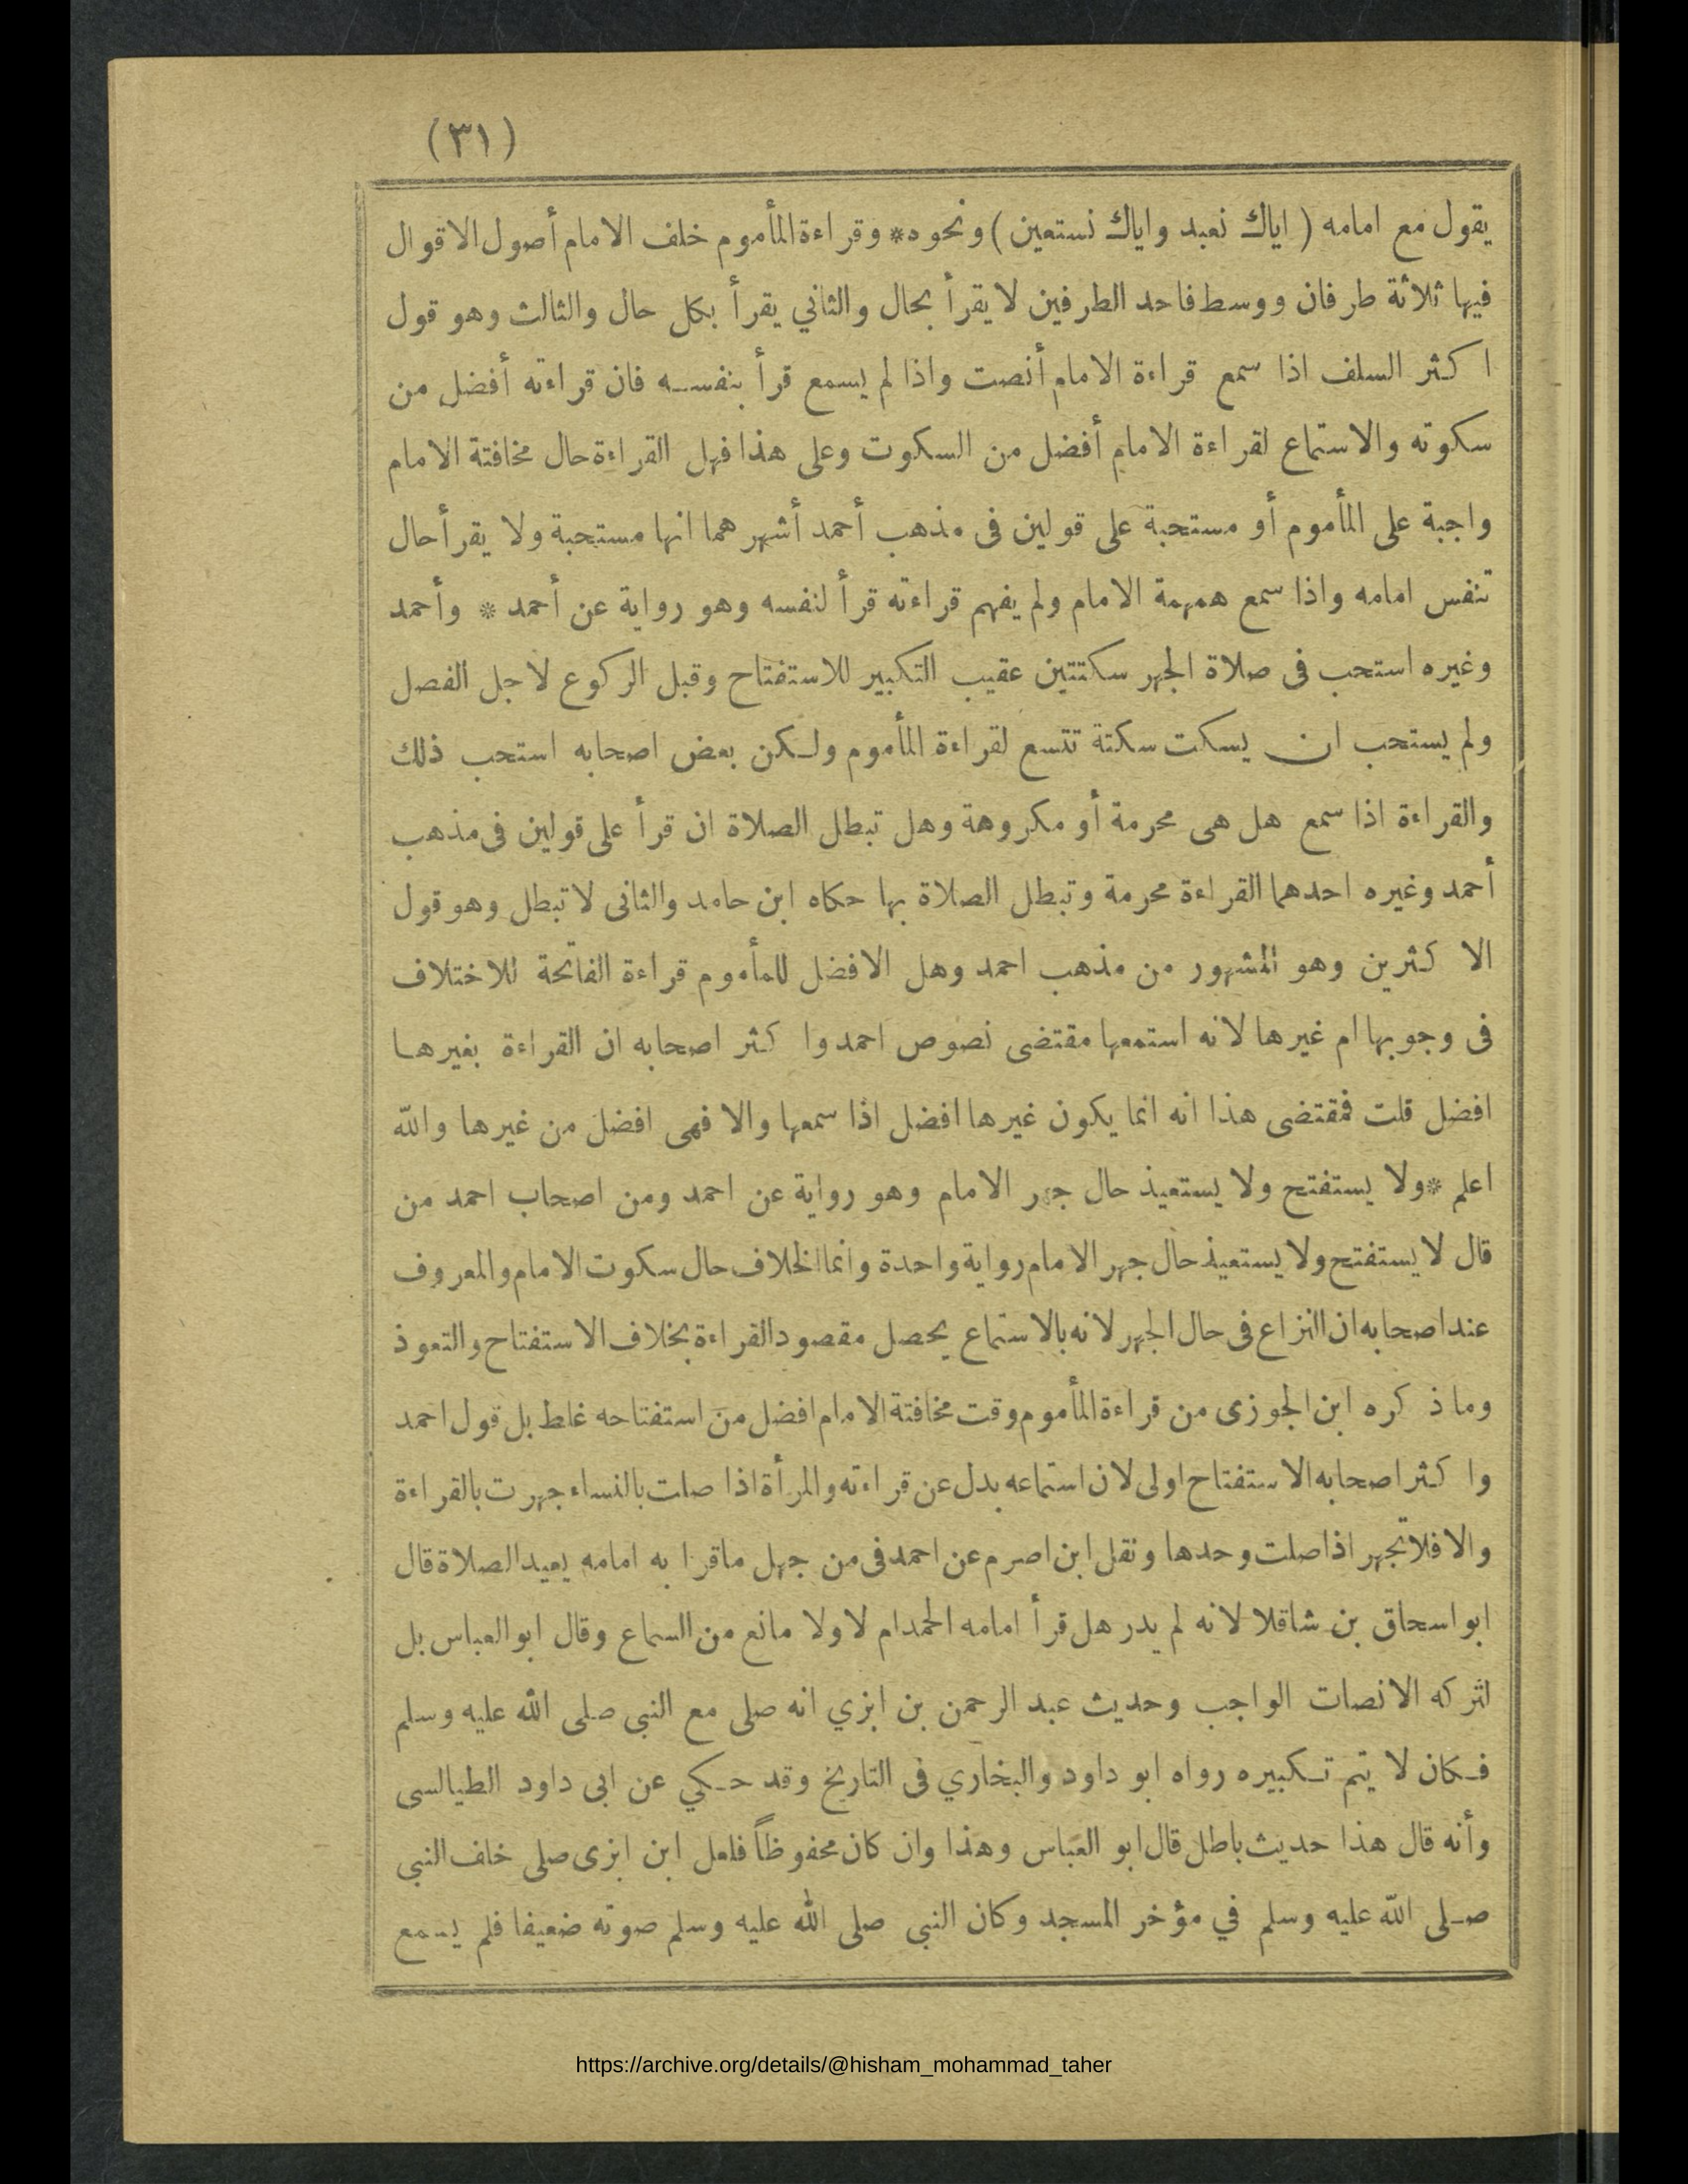 (٣١)
يقول مع امامه ( اياك نعبد واياك نستعين ) ونحوه* وقراءة المأموم خلف الامام أصول الاقوال
فيها ثلاثة طرفان ووسط فاحد الطرفين لا يقرأ بحال والثاني يقرأ بكل حال والثالث وهو قول
اكثر السلف اذا سمع قراءة الامام أنصت واذا لم يسمع قرأ بنفسه فان قراءته أفضل من
سكوته والاستماع لقراءة الامام أفضل من السكوت وعلى هذا فهل القراءة حال مخافتة الامام
واجبة على المأموم أو مستحبة على قولين فى مذهب أحمد أشهرهما انها مستحبة ولا يقرأ حال
تنفس امامه واذا سمع همهمة الامام ولم يفهم قراءته قرأ لنفسه وهو رواية عن أحمد * وأحمد
وغيره استحب فى صلاة الجهر سكتتين عقيب التكبير للاستفتاح وقبل الركوع لاجل الفصل
ولم يستحب ان يسكت سكتة تتسع لقراءة المأموم ولكن بعض اصحابه استحب ذلك
والقراءة اذا سمع هل هى محرمة أو مكروهة وهل تبطل الصلاة ان قرأ على قولين فى مذهب
أحمد وغيره احدهما القراءة محرمة وتبطل الصلاة بها حكاه ابن حامد والثانى لا تبطل وهو قول
الاكثرين وهو المشهور من مذهب احمد وهل الافضل للمأموم قراءة الفاتحة للاختلاف
فى وجوبها ام غيرها لانه استمعها مقتضى نصوص احمد واكثر اصحابه ان القراءة بغيرها
افضل قلت فمقتضى هذا انه انما يكون غيرها افضل اذا سمعها والا فهى افضل من غيرها والله
اعلم *ولا يستفتح ولا يستعيذ حال جهر الامام وهو رواية عن احمد ومن اصحاب احمد من
قال لا يستفتح ولا يستعيذ حال جهر الامام رواية واحدة وانما الخلاف حال سكوت الامام والمعروف
عند اصحابه ان النزاع فى حال الجهر لانه بالاستماع يحصل مقصود القراءة بخلاف الاستفتاح والتعوذ
وما ذكره ابن الجوزى من قراءة المأموم وقت مخافتة الامام افضل من استفتاحه غلط بل قول احمد
واكثر اصحابه الاستفتاح اولى لان استماعه بدل عن قراءته والمرأة اذا صلت بالنساء جهرت بالقراءة
والا فلا تجهر اذا صلت وحدها ونقل ابن اصرم عن احمد فى من جهل ما قرا به امامه يعيد الصلاة قال
ابو اسحاق بن شاقلا لانه لم يدر هل قرأ امامه الحمد ام لا ولا مانع من السماع وقال ابو العباس بل
لتركه الانصات الواجب وحديث عبد الرحمن بن ابزي انه صلى مع النبى صلى الله عليه وسلم
فكان لا يتم تكبيره رواه ابو داود والبخاري فى التاريخ وقد حكي عن ابى داود الطيالسى
وأنه قال هذا حديث باطل قال ابو العباس وهذا وان كان محفوظاً فلعل ابن ابزى صلى خلف النبي
صلى الله عليه وسلم في مؤخر المسجد وكان النبى صلى الله عليه وسلم صوته ضعيفا فلم يسمع
https://archive.org/details/@hisham_mohammad_taher